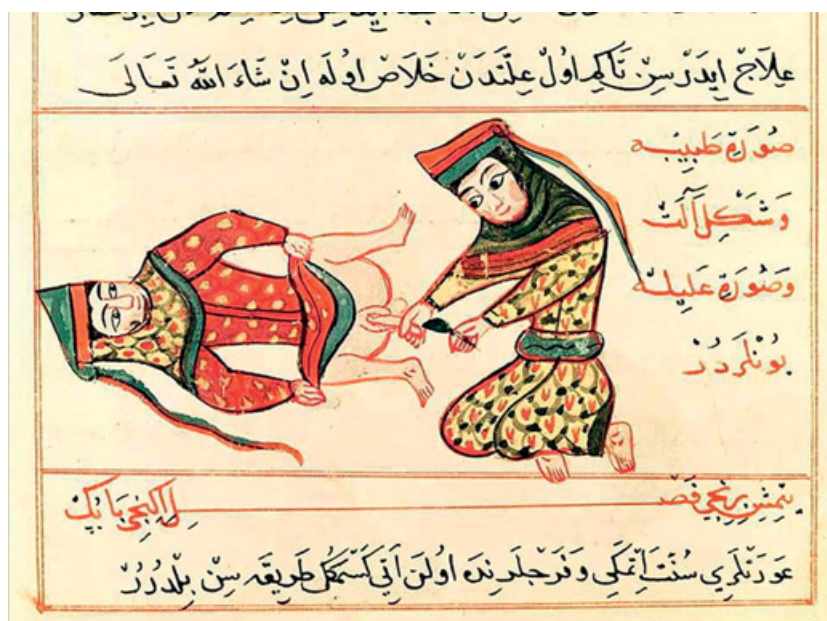 عِلَاجْ ايدَرْسِنْ تَاكِمِ اوُلْ عِلَّتْدَنْ خَلَاصْ اوُلَه اِنْ شَاءَ اللهُ تَعَالَى
صُورَةِ طَبِيبَه
وَشَكْلِ آلَتْ
وَصُورَةِ عَلِيلَه
بُونْلَردُرْ
يتْمِشْ بِرِنْجِي فَصْل اِكِنْجِي بَابِكْ
عَوَرَتْلَرِي سُنَّتْ اِتْمَكِي وَفَرْجلَرِنْدَه اوُلَنْ اَتِي كَسْمَكُكْ طَرِيقَه سِنْ بِلْدُرُرْ